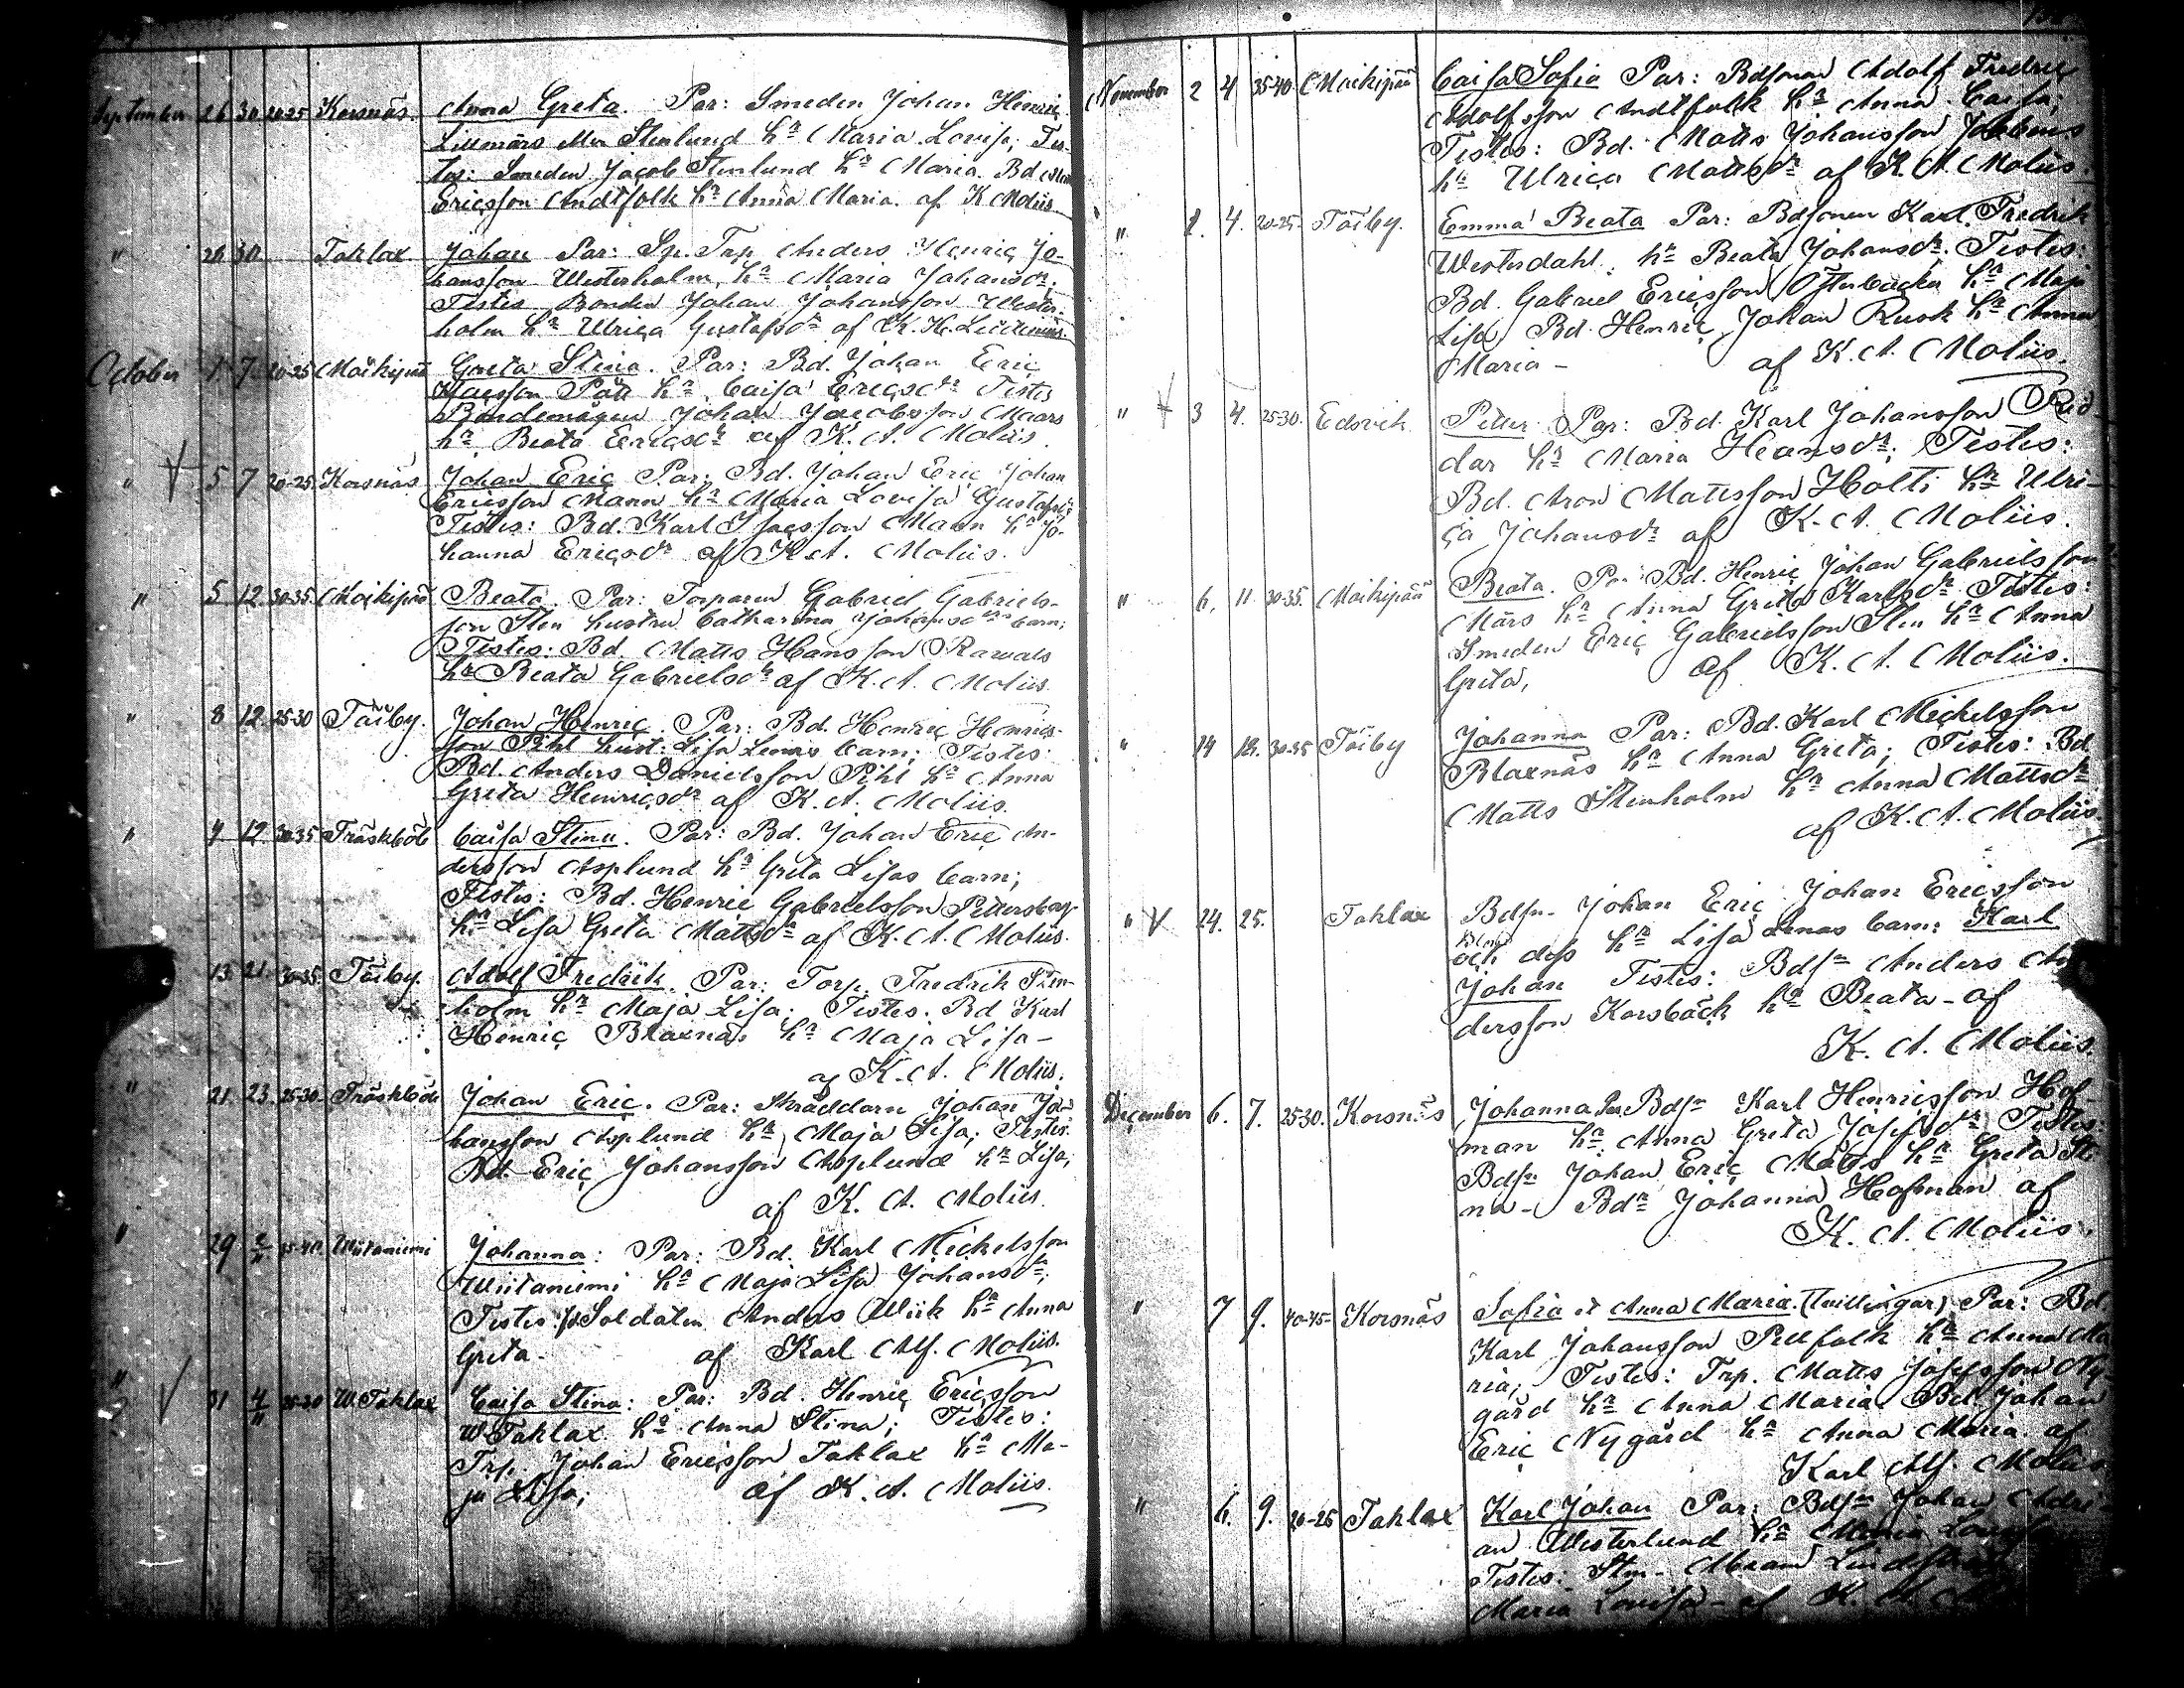 September 26 30 20-25 Korsnäs. Anna Greta. Par: Smeden Johan Henric
Lillmårs eller Stenlund hn Maria Lovisa; Tes-
tes: Smeden Jacob Stenlund hn Maria. Bd
Ericsson Andtfolk hn Anna Maria. af K Moliis
" 26 30 Taklax Johan Par: Sp. Trp Anders Henric Jo-
hansson Westerholm, hn Maria Johansdr;
Testis Bonden Johan Johansson Wester-
holm hn Ulrica Gustafsdr af K. H.
October 1 7 20-25 Moikipää Greta Stina. Par: Bd. Johan Eric
Isacsson Pått hn Caisa Ericsdr Testes
Bondemågen Johan Jacobsson Maars
hn Beata Ericsdr af K. A. Moliis.
" 5 7 20-25 Korsnäs Johan Eric Par: Bd. Johan Eric Johan
Ericsson Mann hn Maria Lovisa Gustafsdr
Testes: Bd. Karl Isacsson Mann hn Jo-
hanna Ericsdr af K. A. Moliis.
" 5 12 30-35 Moikipää Beata. Par: Torparen Gabriel Gabriels-
son Sten hustru Catharina Johansdr barn;
Testes: Bd. Matts Hansson Rawals
hn Beata Gabrielsdr af K. A. Moliis
" 8 12 25-30 Töiby. Johan Henric Par: Bd. Henric Henrics-
son Pihl hust: Lisa Lenas barn; Testes:
Bd. Anders Danielsson Pihl hn Anna
Greta Henricsdr af K. A. Moliis.
" 9 12 30-35 Träskböle Caisa Stina. Par: Bd. Johan Eric An-
dersson Asplund hn Greta Lisas barn;
Testes: Bd. Henric Gabrielsson Pettersbag
hn Lisa Greta Mattsdr af K. A. Moliis.
13 21 30-35 Töiby. Adolf Fredrik. Par: Torp. Fredrik Sten-
holm hn Maja Lisa; Testes. Bd Karl
Henric Blaxnäs hn Maja Lisa -
af K. A. Moliis.
" 21 23 25-30 Träskböle Johan Eric. Par: Skräddarn Johan Jo-
hansson Asplund hn Maja Lisa; Testes:
Bd. Eric Johansson Asplund hn Lisa;
af K. A. Moliis.
" 29 2/11 35-40 Wiitaniemi Johanna: Par: Bd. Karl Mickelsson
Wiitaniemi hn Maja Lisa Johansdr;
Testes: Soldaten Anders Wiik hn Anna
Greta. af Karl Alf. Moliis.
" 31 4/11 W. Taklax Caisa Stina: Par: Bd. Henric Ericsson
W Taklax hn Anna Stina; Testes:
Trp. Johan Ericsson Taklax hn Ma-
ja Lisa; af K. A. Moliis.
November 2 4 35-40 Moikipää Caisa Sofia Par: Bdsonen Adolf Fredric
Adolfsson Andtfolk hn Anna Caisa;
Testes: Bd. Matts Johansson
hn Ulrica Mattsdr af K. A. Moliis.
" 4. 20-25 Töiby. Emma Beata Par: Bdsonen Karl Fredrik
Westerdahl. hn Beata Johansdr. Testes:
Bd. Gabriel Ericsson Österbacka hn Maja
Lisa, Bd. Henric Johan Rusk hn Anna
Maria - af K. A. Moliis.
" 3 4 25-30. Edsvik Petter Par: Bd. Karl Johansson Rid
dar hn Maria Hansdr; Testes:
Bd. Aron Mattsson Holti hn Ulri-
ca Johansdr af K. A. Moliis.
" 6. 11 30-35. Moikipää Beata. Par: Bd. Henric Johan Gabrielsson
Mårs hn Anna Greta Karlsdr Testes:
Smeden Eric Gabrielsson Sten hn Anna
Greta, af K. A. Moliis.
" 14 18. 30-35 Töiby Johanna Par: Bd. Karl Mickelsson
Blaxnäs hn Anna Greta; Testes: Bd.
Matts Stenholm hn Anna Mattsdr
af K. A. Moliis.
" 24. 25. Taklax Bdsn Johan Eric Johan Ericsson
och dess hn Lisa Lenas barn: Karl
Johan Testes: Bdsn Anders An-
dersson Korsbäck hn Beata - af
K. A. Moliis.
December 6. 7. 25-30. Korsnäs Johanna Par: Bdsn Karl Henricsson Hof-
man hn Anna Greta Josefsdr Testes:
Bdsn Johan Eric Matts hn Greta Sti
na - Bdn Johanna Hofman af
K. A. Moliis.
" 7 9. 40-45- Korsnäs Sofia et Anna Maria. (Tvillingar) Par: Bd.
Karl Johansson Pellfolk hn Anna Ma
ria; Testes: Trp. Matts Josefsson Ny-
gård hn Anna Maria Bd. Johan
Eric Nygård hn Anna Maria. af
Karl Alf. Moliis
" 6. 9. 20-25 Taklax Karl Johan Par: Bdsn Johan Adri-
an Westerlund hn Maria
Testes:
Maria Lovisa - af K. A.